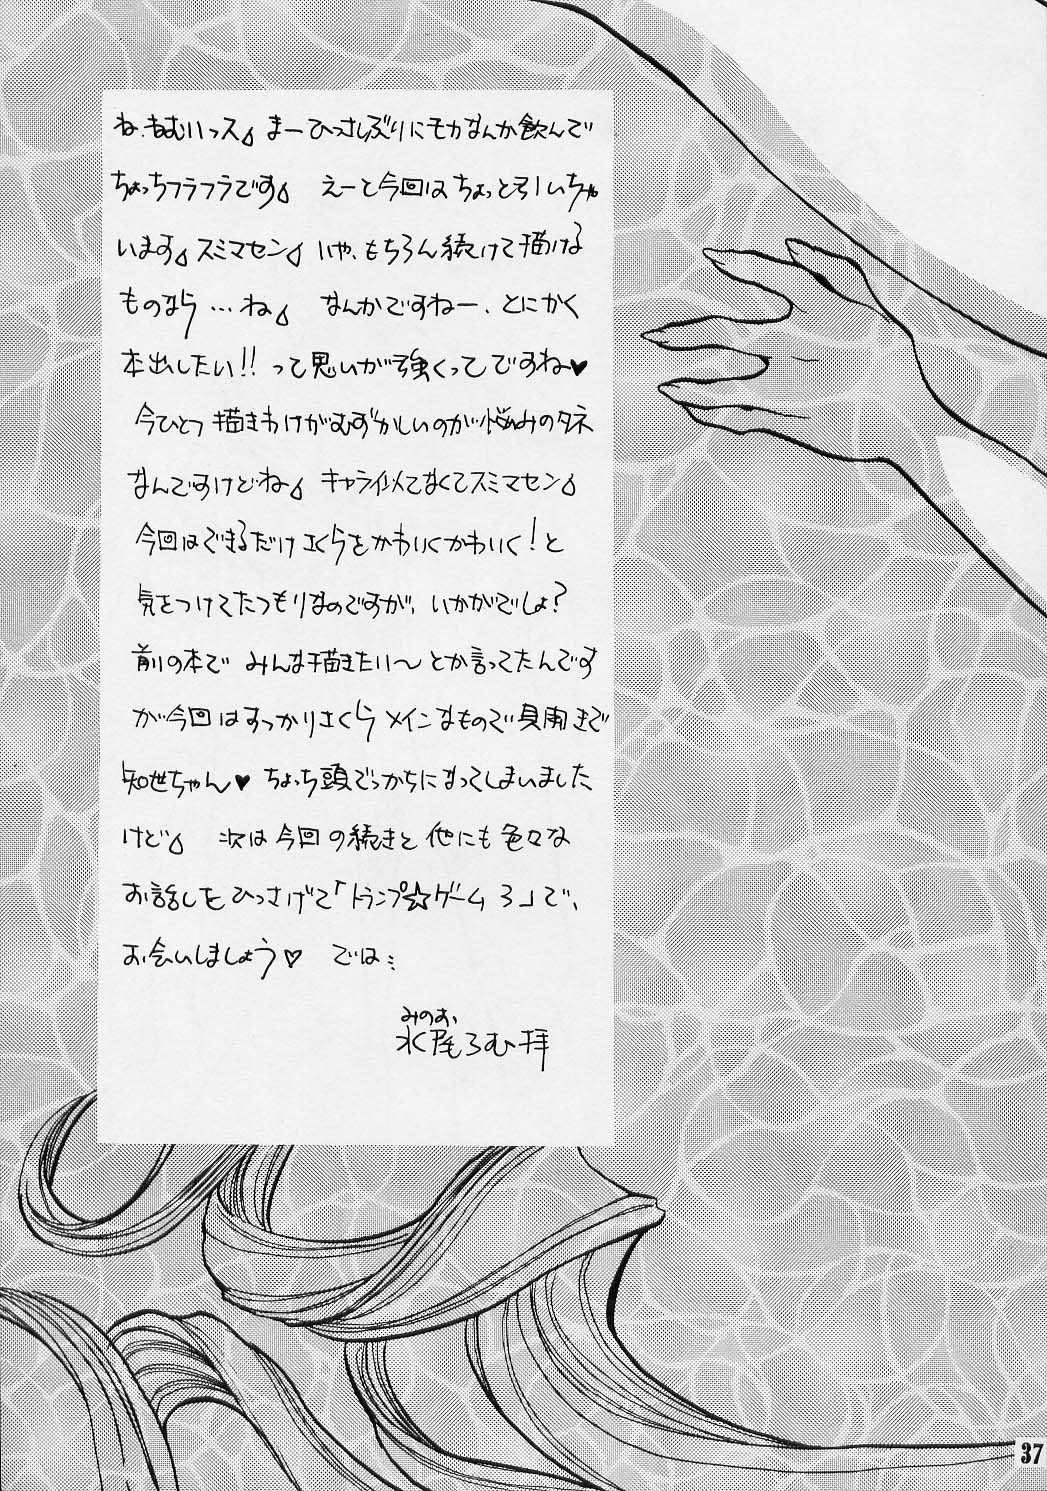 ね、ねむいっス まーひっさしぶりにモカなんか飲んで
ちょっちフラフラです えーと今回はちょっと引いちゃ
います スミマセン いや、もちろん続けて描ける
ものなら…ね なんかですねー、とにかく
本出したい!!って思いが強くってですね♥
今ひとつ描きわけがむずかしいのが悩みのタネ
なんですけどね キャラ似てなくてスミマセン
今回はできるだけさくらをかわいくかわいく!と
気をつけてたつもりなのですが、いかがでしょ?
前の本で みんな描きたい〜とか言ってたんです
が今回はすっかりさくらメインなもので見開きで
知世ちゃん♥ ちょっち頭でっかちになってしまいました
けど 次は今回の続きと他にも色々な
お話しをひっさげて「トランプ☆ゲーム3」で、
お会いしましょう♡ では…
みのお
水尾ろむ拝
37